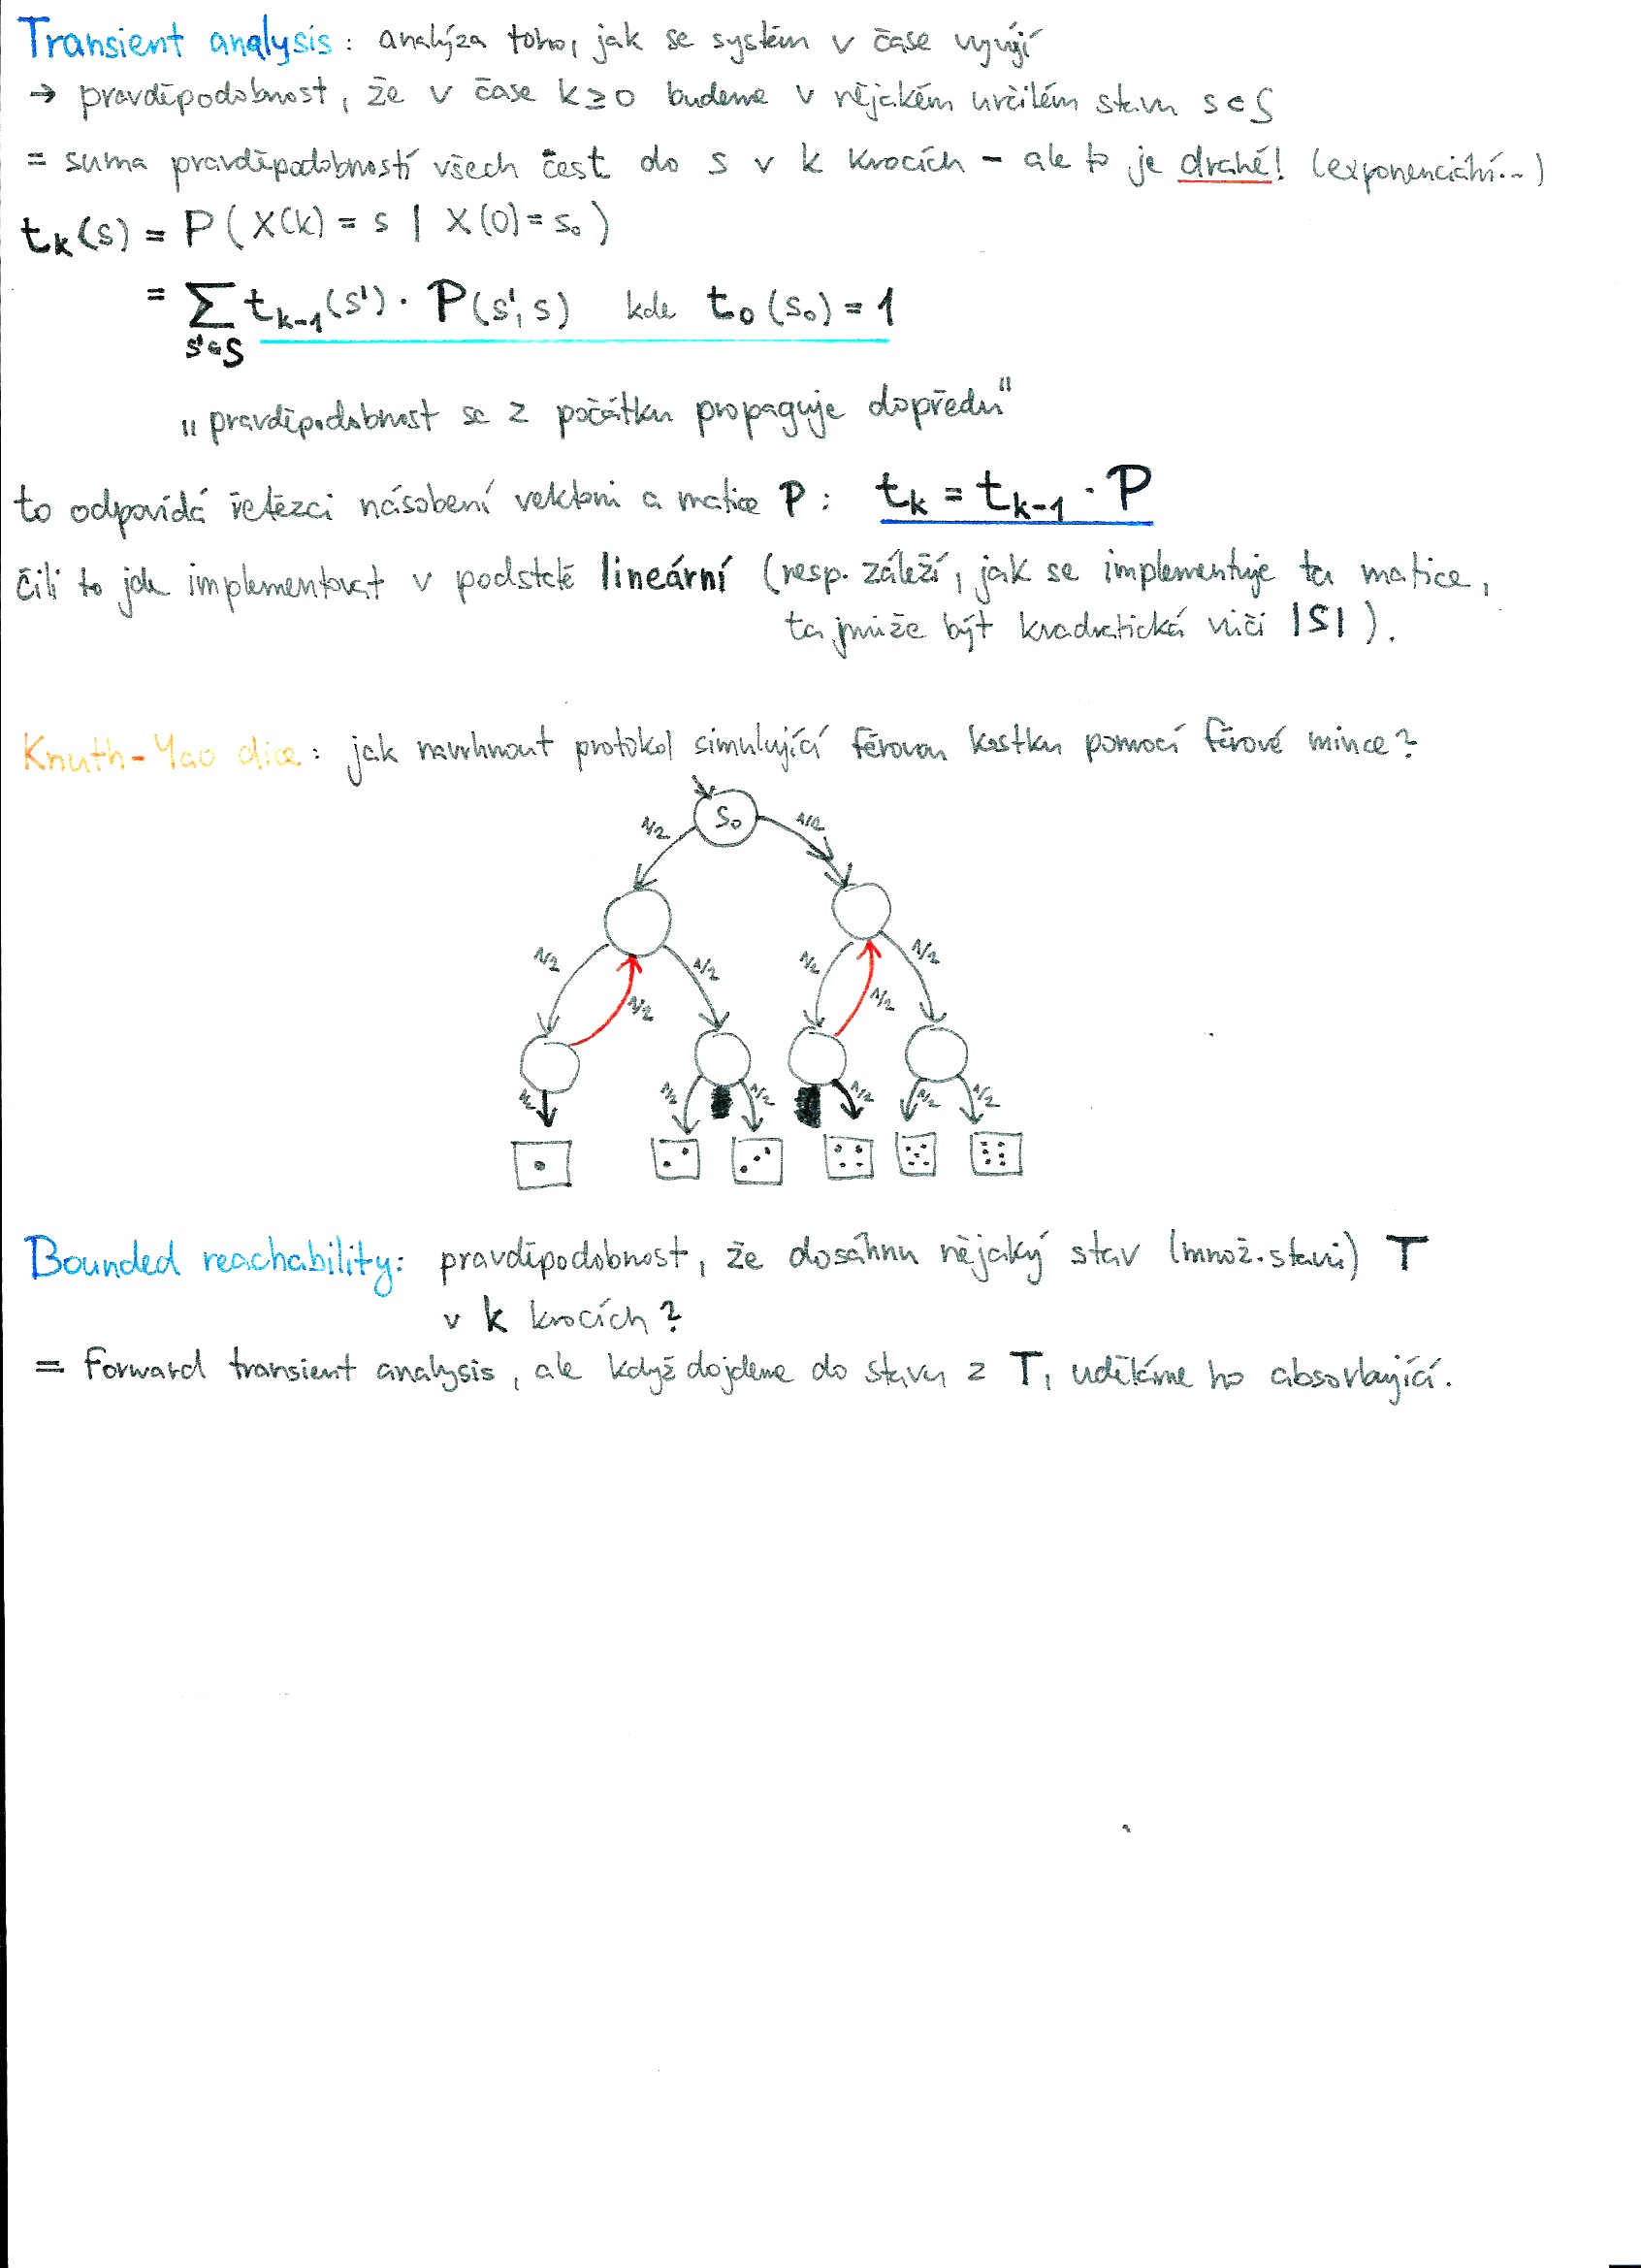 Transient analysis: analýza toho, jak se systém v čase vyvíjí
→ pravděpodobnost, že v čase k ≥ 0 budeme v nějakém určitém stavu s ∈ S
= suma pravděpodobností všech cest do s v k krocích - ale to je drahé! (exponenciální...)
t_k(s) = P(X(k) = s | X(0) = s_0)
= Σ_{s'∈S} t_{k-1}(s') · P(s', s) kde t_0(s_0) = 1
„pravděpodobnost se z počátku propaguje dopředu"
to odpovídá řetězci násobení vektoru a matice P: t_k = t_{k-1} · P
čili to jde implementovat v podstatě lineární (resp. záleží, jak se implementuje ta matice,
ta může být kvadratická vůči |S|).
Knuth-Yao dice: jak navrhnout protokol simulující férovou kostku pomocí férové mince?
s_0
1/2 1/2
1/2 1/2 1/2 1/2
1/2 1/2
1/2 1/2 1/2 1/2 1/2 1/2
Bounded reachability: pravděpodobnost, že dosáhnu nějaký stav (množ. stavů) T
v k krocích?
= Forward transient analysis, ale když dojdeme do stavu z T, uděláme ho absorbující.